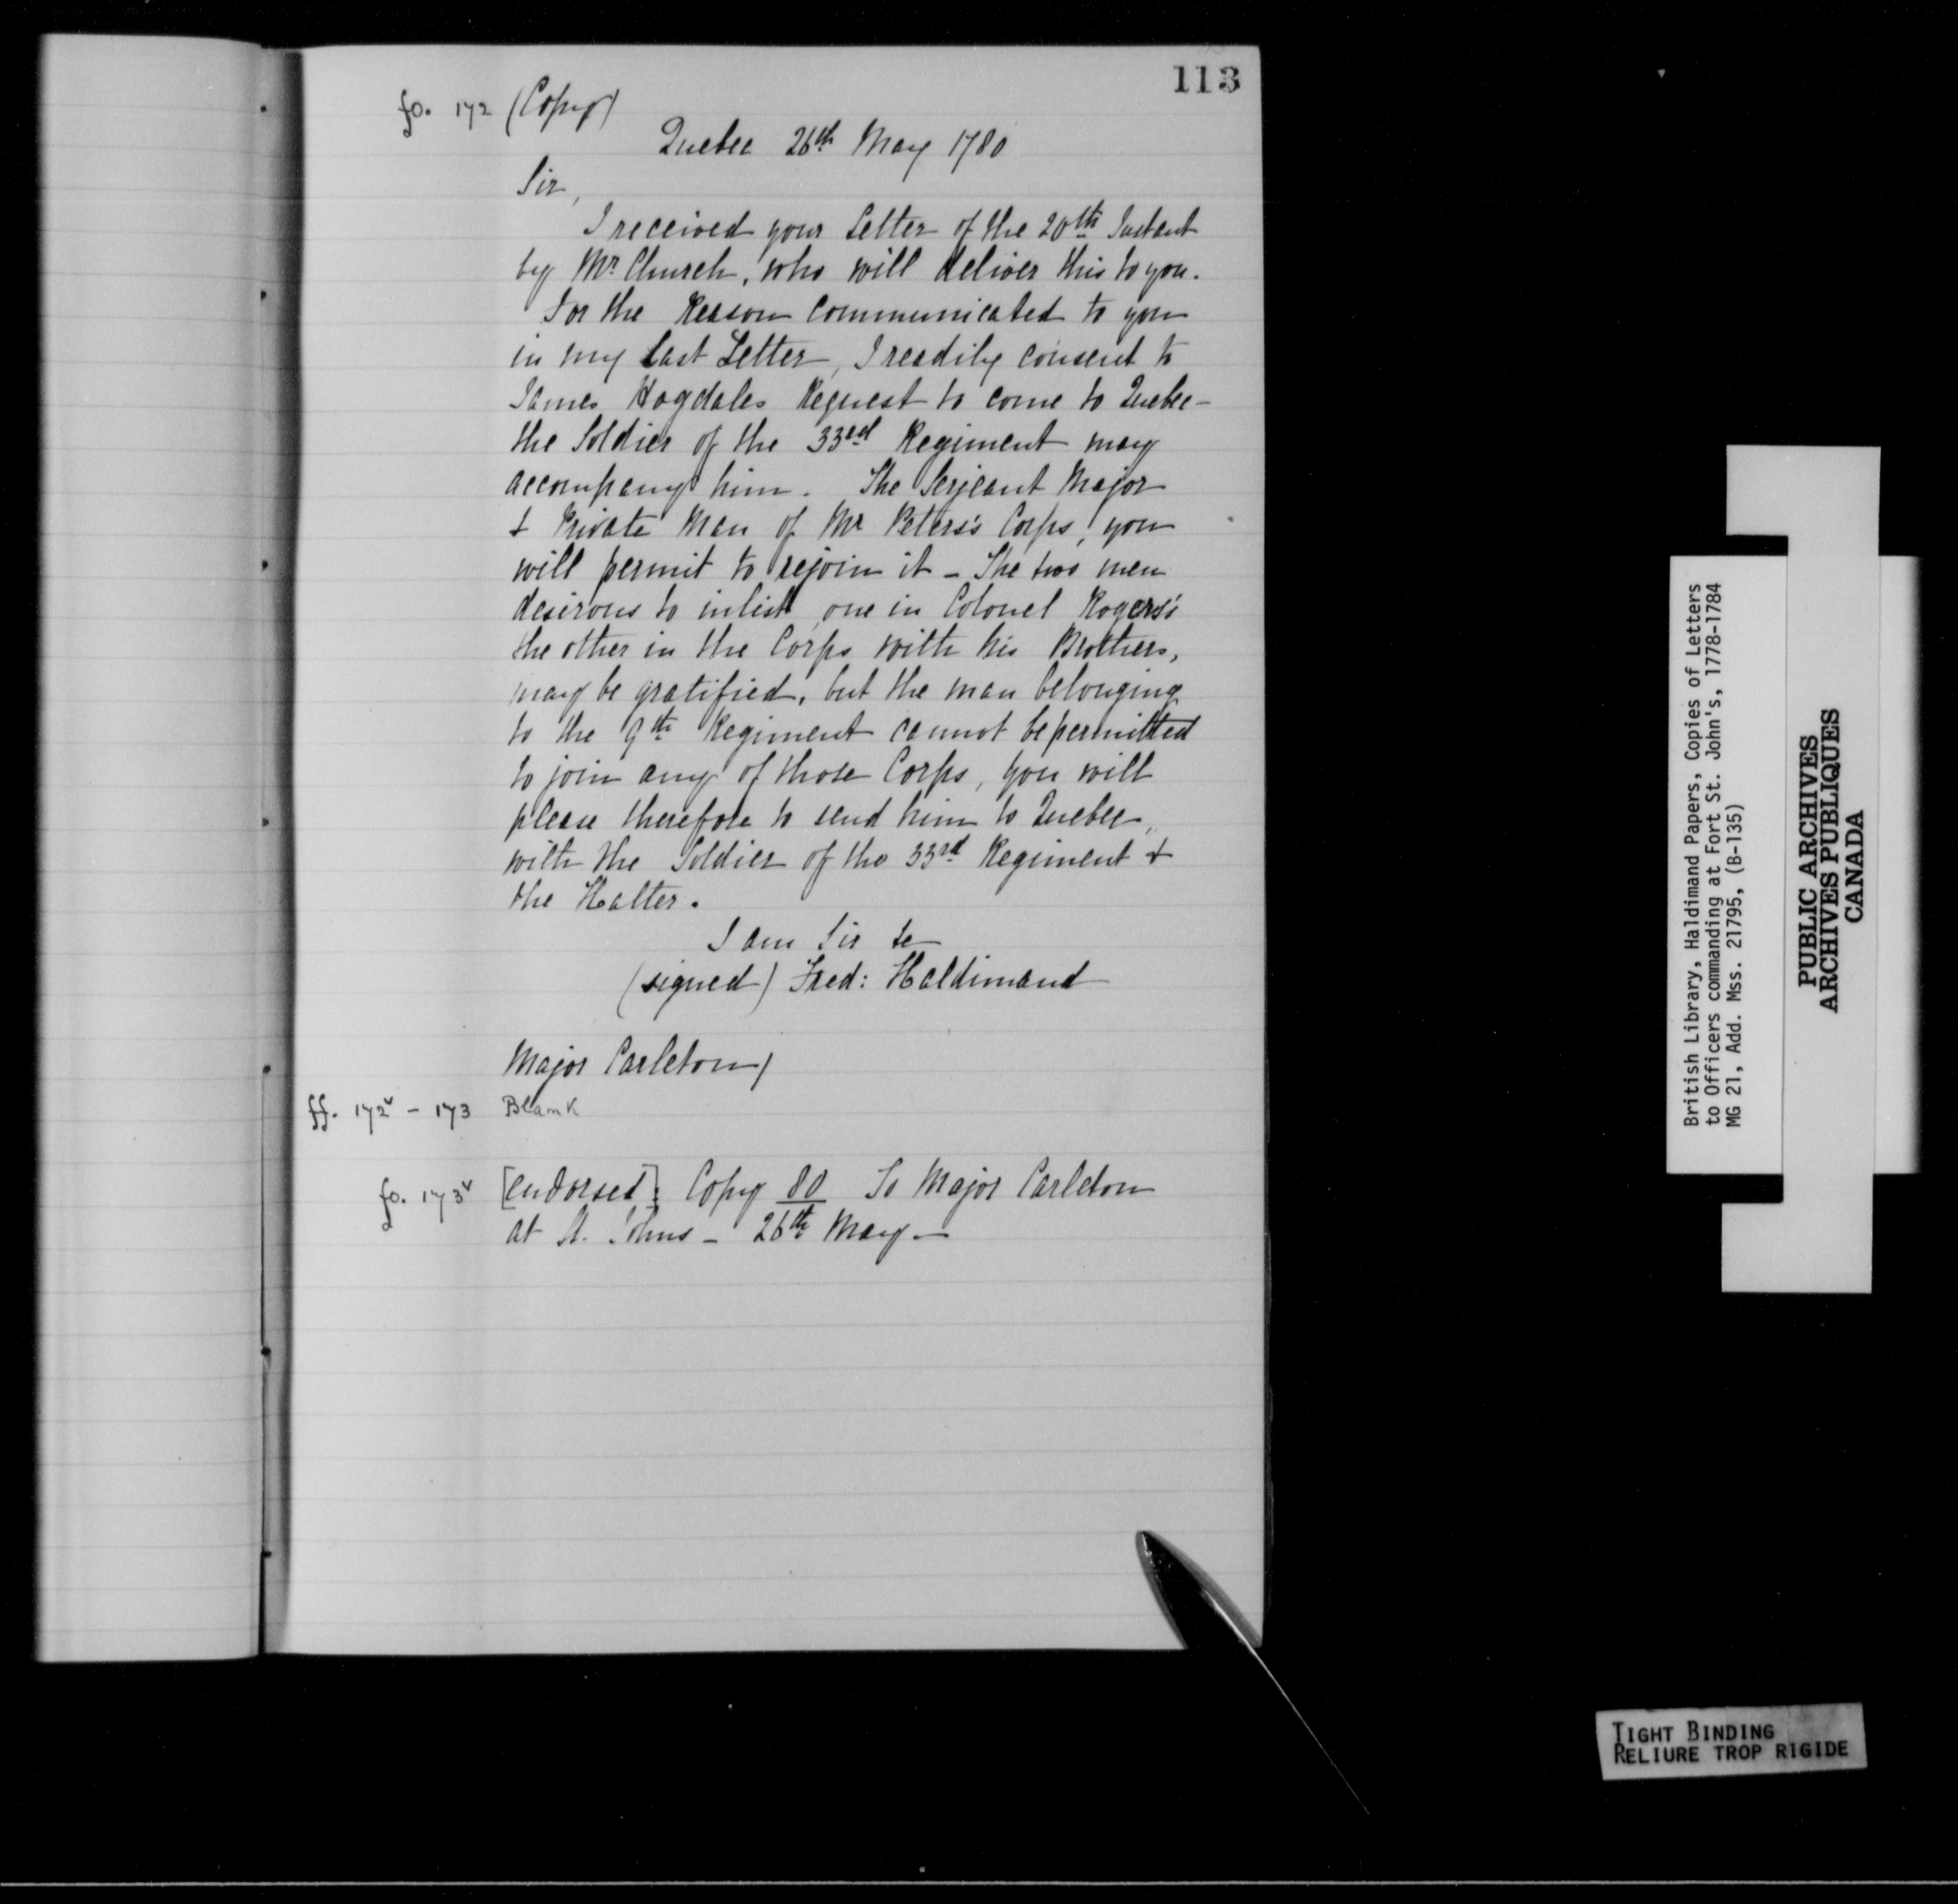 113
fo. 172 (Copy)
Quebec 26th May 1780
Sir,
I received your Letter of the 20th Instant
by Mr. Church, who will deliver this to you.
For the Reason Communicated to you
in my last Letter, I readily consent to
James Hogdales Request to come to Quebec -
the Soldier of the 33rd Regiment may
accompany him. The Serjeant Major
& Private Man of Mr Peters's Corps, you
will permit to rejoin it - The two men
desirous to inlist, one in Colonel Rogers's
the other in the Corps with his Brothers,
may be gratified, but the man belonging
to the 9th Regiment cannot be permitted
to join any of those Corps, you will
please therefore to send him to Quebec,
with the Soldier of the 33rd Regiment &
the Hatter.
I am Sir &c
(signed) Fred: Haldimand
Major Carleton)
ff. 172v - 173 Blank
fo. 173v [endorsed]: Copy 80 To Major Carleton
at St. Johns - 26th May -
British Library, Haldimand Papers, Copies of Letters
to Officers commanding at Fort St. John's, 1778-1784
MG 21, Add. Mss. 21795, (B-135)
PUBLIC ARCHIVES
ARCHIVES PUBLIQUES
CANADA
TIGHT BINDING
RELIURE TROP RIGIDE